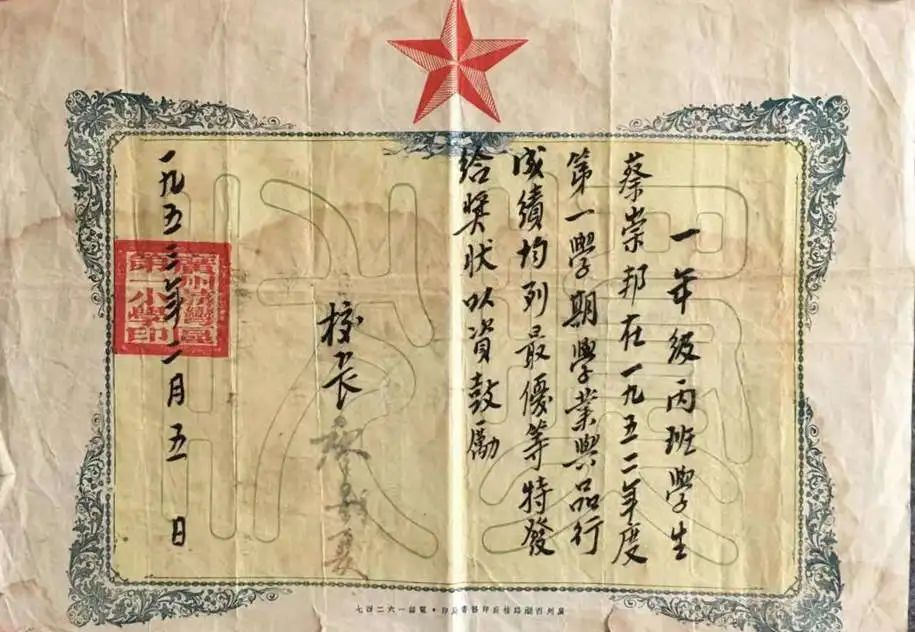 一年級丙班學生
蔡崇邦在一九五二年度
第一學期學業與品行
成績均列最優等特發
給獎狀以資鼓勵
校长
一九五三年二月五日
第一小學印
獎狀